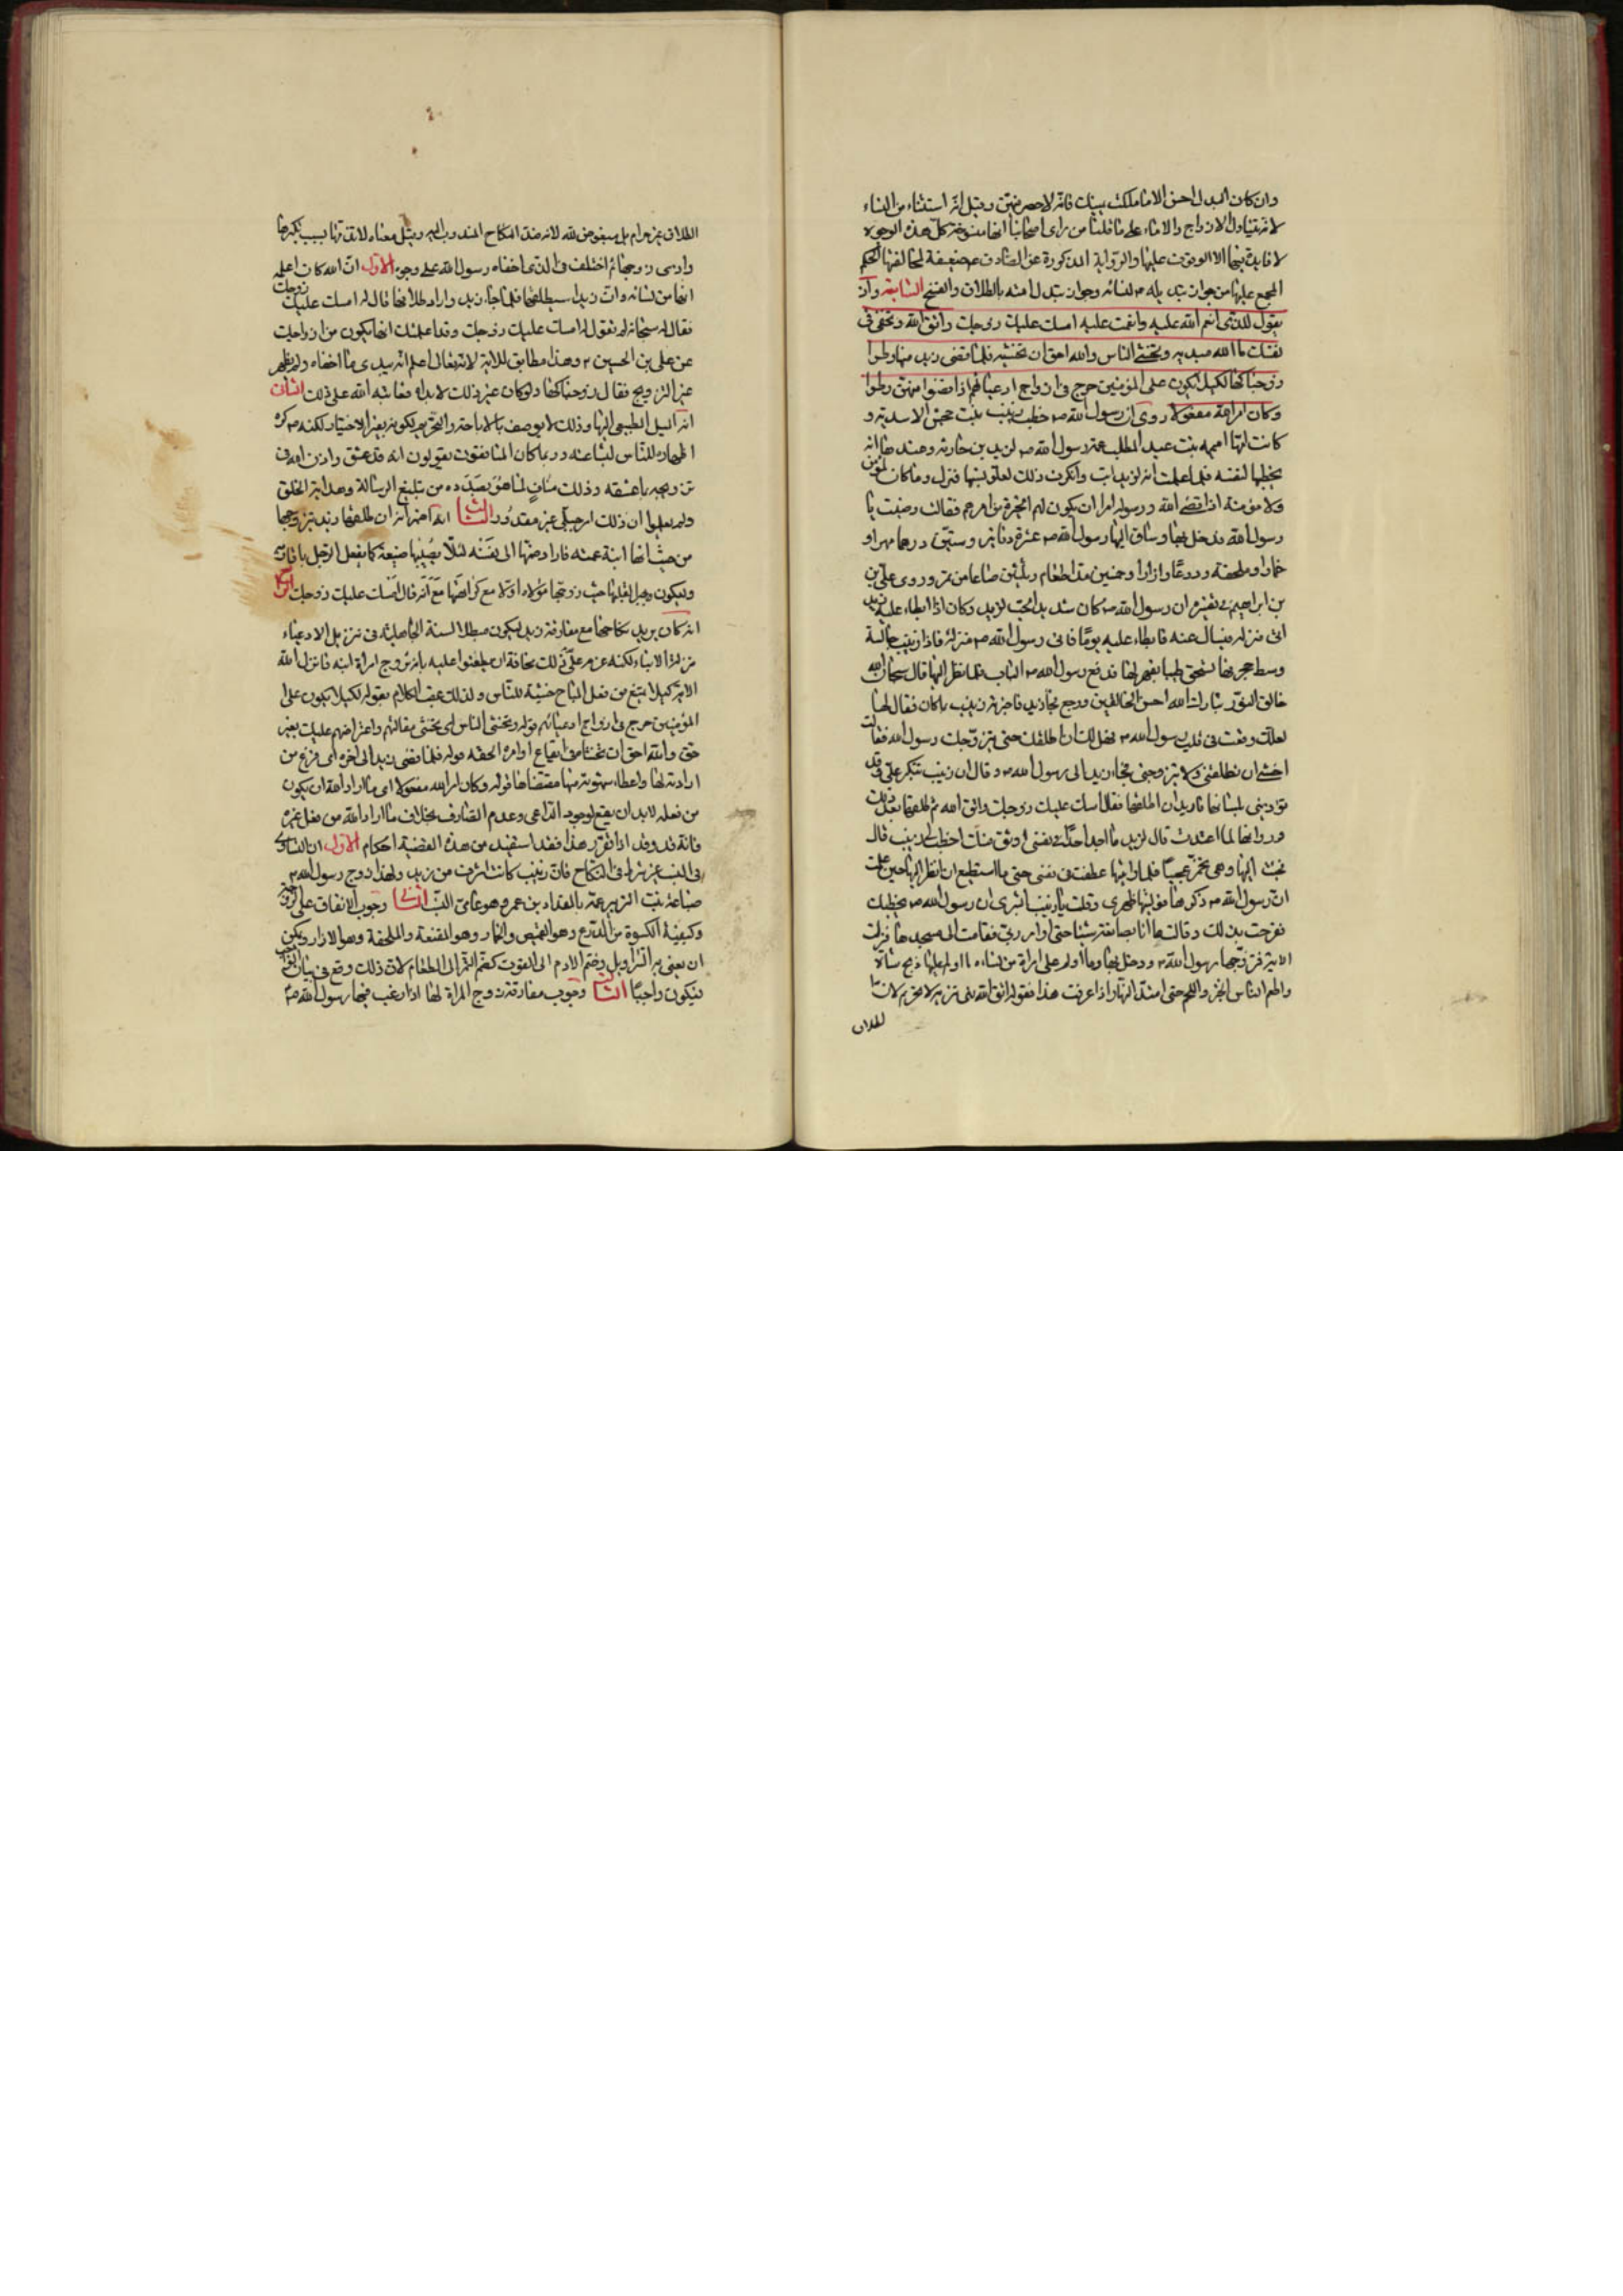 وان كان المبدل احسن الا ما ملكت يمينك فانه لا حصر فيهن وقيل انه استثناء من النساء
لانه يتناول الازواج والاماء على ما قلنا من راى اصحابنا انها منسوخة كل هذه الوجوه
لا فايدة فيها الا الوقوف عليها والرواية المذكورة عن الصادق ع ضعيفة لمخالفتها الحكم
المجمع عليه من جواز تبديله ص لنسائه وجواز تبديل امته بالطلاق والفسخ الثامنة واذ
تقول للذى انعم الله عليه وانعمت عليه امسك عليك زوجك واتق الله وتخفى فى
نفسك ما الله مبديه وتخشى الناس والله احق ان تخشيه فلما قضى زيد منها وطرا
زوجناكها لكيلا يكون على المؤمنين حرج فى ازواج ادعيائهم اذا قضوا منهن وطرا
وكان امر الله مفعولا روى ان رسول الله ص خطب زينب بنت جحش الاسدية و
كانت امها اميمه بنت عبد المطلب عمة رسول الله ص لزيد بن حارثه وعندها انه
يخطبها لنفسه فلما علمت انه لزيد ابت وانكرت ذلك لعلو نسبها فنزل وما كان لمؤمن
ولا مؤمنة اذا قضى الله ورسوله امرا ان يكون لهم الخيرة من امرهم فقالت رضيت يا
رسول الله فدخل بها وساق اليها رسول الله ص عشرة دنانير وستين درهما مهرا و
خمارا وملحفة ودرعا وازارا وخمسين مدا طعام وثلثين صاعا من تمر وروى على بن
بن ابراهيم فى تفسيره ان رسول الله ص كان شديد الحب لزيد وكان اذا ابطاء عليه زيد
اتى منزله فيسال عنه فابطاء عليه يوما فاتى رسول الله ص منزله فاذا زينب جالسة
وسط حجرتها تسحق طيبا بفهر لها فدفع رسول الله ص الباب فلما نظر اليها قال سبحان الله
خالق النور تبارك الله احسن الخالقين ورجع فجاء زيد فاخبرته زينب بما كان فقال لها
لعلك وقعت فى قلب رسول الله ص فهل لك ان اطلقك حتى يتزوجك رسول الله فقالت
اخشى ان تطلقنى ولا يتزوجنى فجاء زيد الى رسول الله ص وقال ان زينب تتكبر على وقد
تؤذينى بلسانها فاريد ان اطلقها فقال امسك عليك زوجك واتق الله ثم طلقها بعد ذلك
وروى انها لما اعتدت قال لزيد ما اجد احدا فى نفسى اوثق منك اخطب الى زينب قال
فجئت اليها وهى تخمر عجينها فلما رايتها عظمت فى نفسى حتى ما استطيع ان انظر اليها حين علمت
ان رسول الله ص ذكرها فوليتها ظهرى وقلت يا زينب ابشرى ان رسول الله ص يخطبك
ففرحت بذلك وقالت ما انا بصانعة شيئا حتى اوامر ربى فقامت الى مسجدها فنزلت
الاية فتزوجها رسول الله ص ودخل بها وما اولم على امراة من نسائه ما اولم عليها ذبح شاة
واطعم الناس الخبز واللحم حتى امتد النهار اذا عرفت هذا فقوله اتق الله نهى تنزيه لا تحريم لان
الطلاق
الطلاق غير حرام بل مبغوض لله لانه ضد النكاح المندوب اليه وقيل معناه لا تقذفها بسبب تكبرها
واذى زوجها ثم اختلف فى الذى اخفاه رسول الله على وجوه الاول ان الله كان اعلمه
انها من نسائه وان زيدا سيطلقها فلما جاء زيد واراد طلاقها قال له امسك عليك زوجك
فقال سبحانه لم تقول له امسك عليك زوجك وقد اعلمتك انها تكون من ازواجك
عن على بن الحسين ع وهذا مطابق للاية لانه تعالى اعلم انه يبدى ما اخفاه ولم يظهر
غير التزويج فقال زوجناكها ولو كان غير ذلك لابداه معاتبه الله على ذلك الثانى
انه الميل الطبيعى اليها وذلك لا يوصف بالاباحة والتحريم لكونه بغير الاختيار لكنه ص كره
اظهاره للناس لشناعته وربما كان المنافقون يقولون انه قد عشق واذن الله فى
تزويجه باعشقه وذلك مناف لما هو بصدده من تبليغ الرسالة وهداية الخلق
ولم يعلموا ان ذلك امر جبلى غير مقدور الثالث انه اضمر انه ان طلقها زيد تزوجها
من حيث انها ابنة عمته فاراد ضمها الى نفسه لئلا يصيبها ضيعة كما يفعل الرجل باقاربه
وليكون جبرا لقلبها حيث زوجها مولاه اولا مع كراهتها مع انه قال امسك عليك زوجك الرابع
انه كان يريد نكاحها مع مفارقة زيد ليكون مبطلا لسنة الجاهلية فى تنزيل الادعياء
منزلة الابناء لكنه عزم على ذلك مخافة ان يطعنوا عليه بانه تزوج امراة ابنه فانزل الله
الاية كيلا يمتنع من فعل المباح خشية للناس ولذلك عقب الكلام بقوله لكيلا يكون على
المؤمنين حرج فى ازواج ادعيائهم قوله وتخشى الناس اى تخشى مقالتهم واعتراضهم عليك بغير
حق والله احق ان تخشاه فى ايقاع اوامره الحقه قوله فلما قضى زيد الى اخره اى فرغ من
ارادته لها واعطاء شهوته منها مقتضاها قوله وكان امر الله مفعولا اى ما اراد الله ان يكون
من فعله لابد ان يقع لوجود الداعى وعدم الصارف بخلاف ما اراد الله من فعل غيره
فانه قد وقد اذا تقرر هذا فقد استفيد من هذه القضية احكام الاول ان التساوى
فى النسب غير شرط فى النكاح فان زينب كانت اشرف من زيد ولهذا زوج رسول الله ص
ضباعة بنت الزبير عمه بالمقداد بن عمرو وهو عامى النسب الثانى وجوب الانفاق على الزوجة
وكيفية الكسوة من الدرع وهو القميص والخمار وهو المقنعة والملحفة وهو الازار ويمكن
ان يعنى به السراويل وضم الادم الى القوت كضم التمر الى الطعام لان ذلك وقع فى بيان
فيكون واجبا الثالث وجوب مفارقة زوج المراة لها اذا رغب فيها رسول الله ص